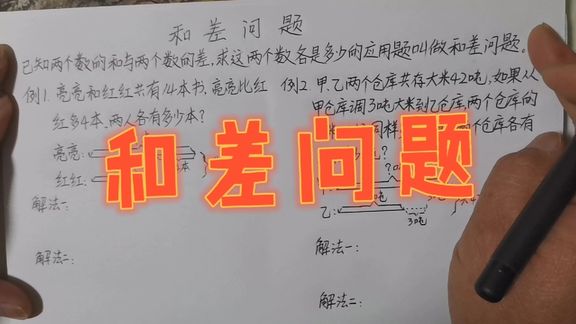 和差问题
已知两个数的和与两个数的差,求这两个数各是多少的应用题叫做和差问题。
例1. 亮亮和红红共有14本书,亮亮比红
红多4本,两人各有多少本?
亮亮:
本
红红:
解法一:
解法二:
例2. 甲、乙两个仓库共存大米42吨,如果从
甲仓库调3吨大米到乙仓库,两个仓库的
同样
个仓库各有
?
乙:
3吨
解法一:
解法二:
和差问题